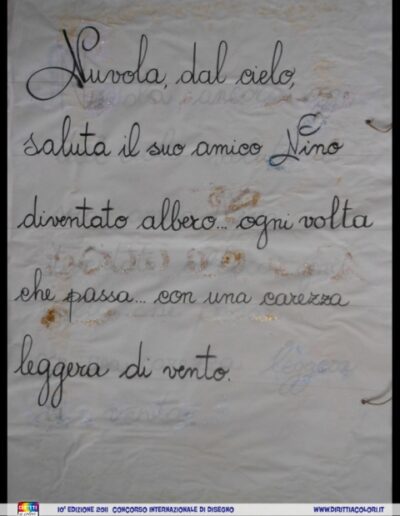 Nuvola, dal cielo,
saluta il suo amico Nino
diventato albero... ogni volta
che passa... con una carezza
leggera di vento.
leggera
10ª EDIZIONE 2011 CONCORSO INTERNAZIONALE DI DISEGNO
WWW.DIRITTIACOLORI.IT